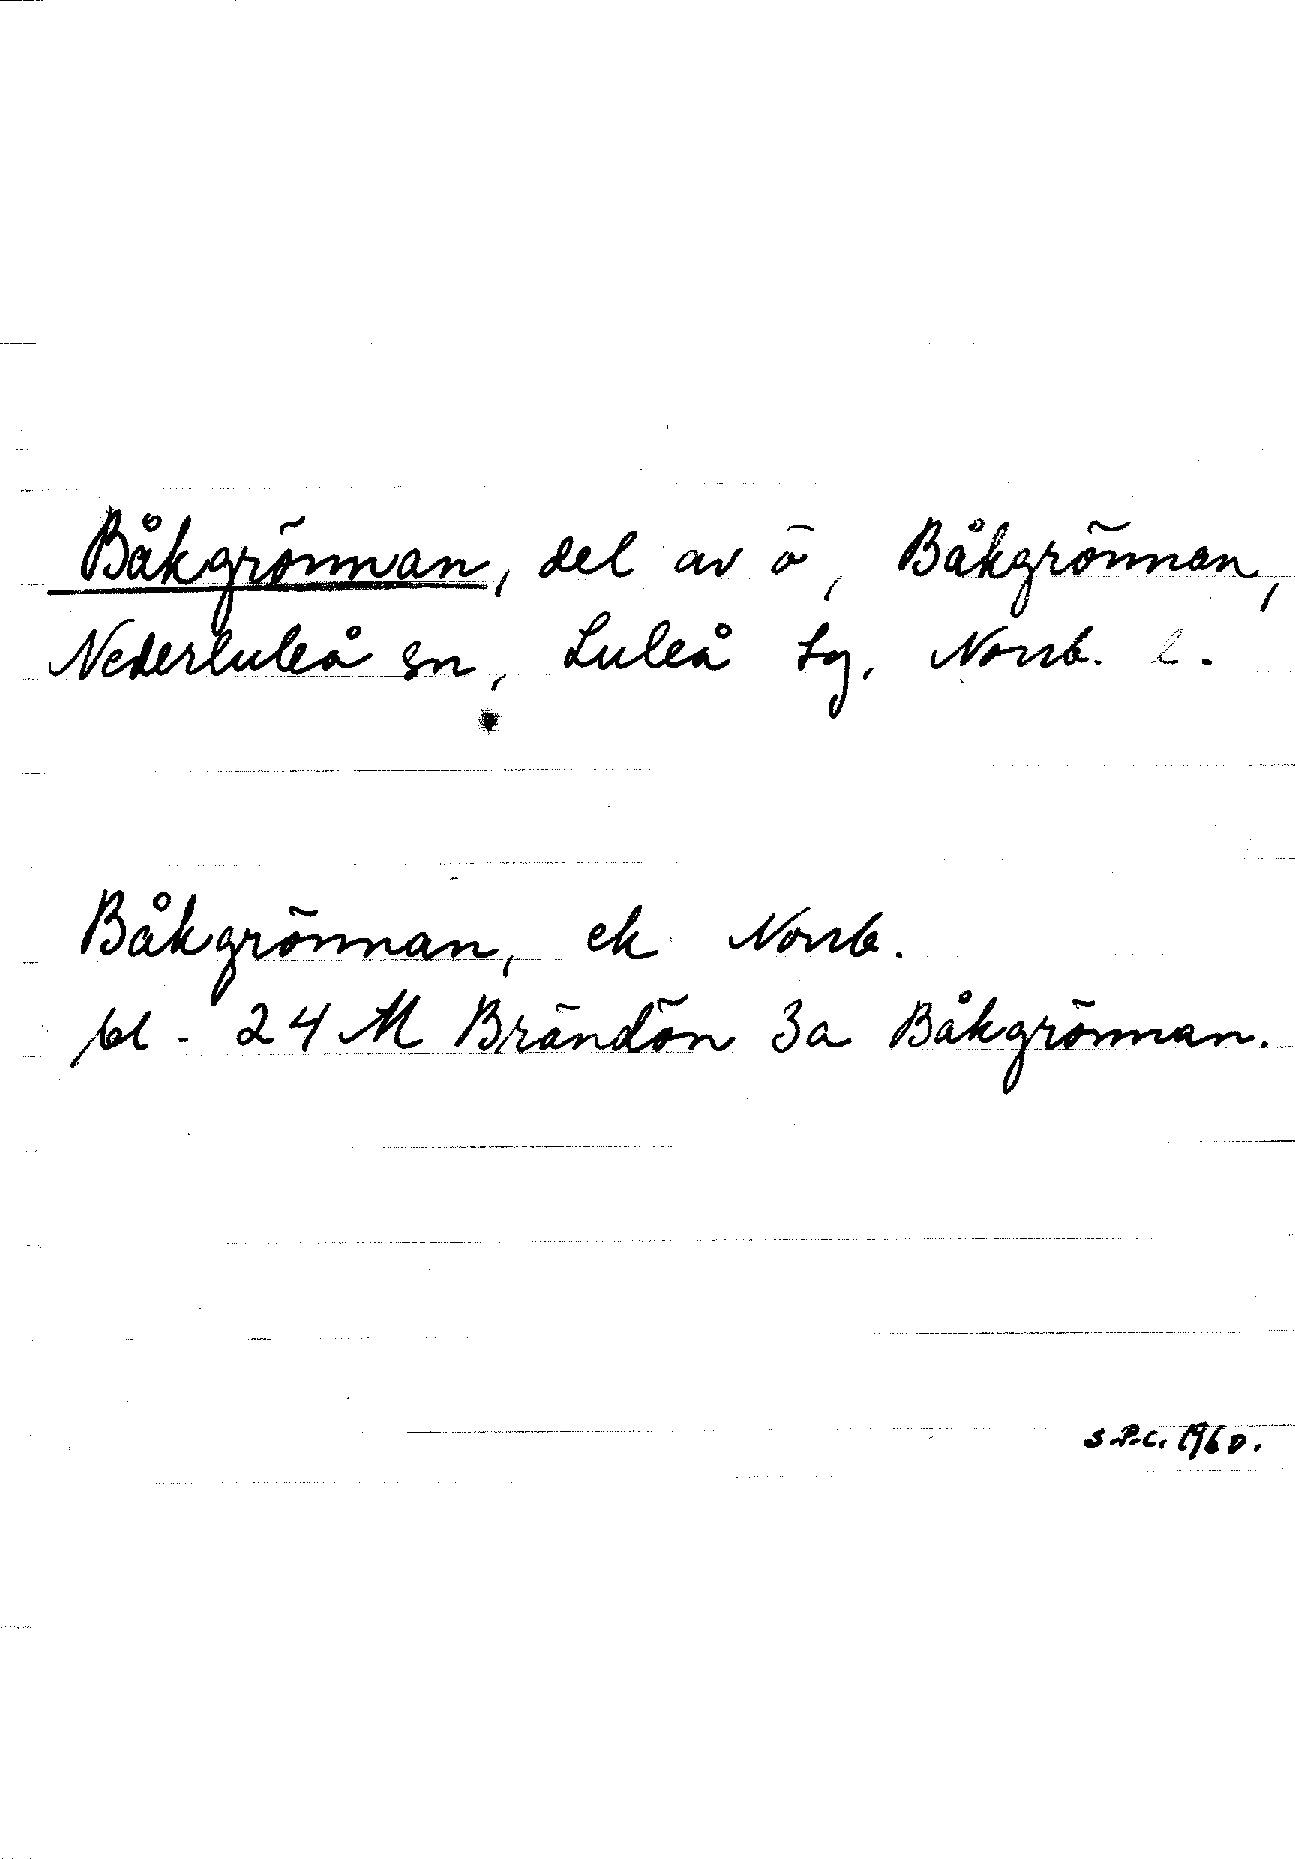 Båkgrönnan, del av ö, Båkgrönnan,
Nederluleå sn, Luleå tg, Norrb. l.
Båkgrönnan, ek Norrb.
bl - 24 M Brändön 3a Båkgrönnan.
S.P.C. 1960.